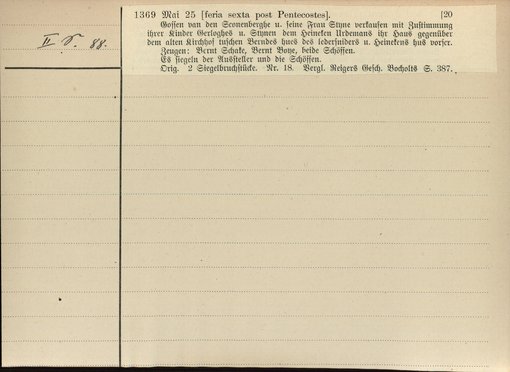 II 88.
1369 Mai 25 [feria sexta post Pentecostes]. [20
Gossen van den Sconenberghe u. seine Frau Styne verkaufen mit Zustimmung
ihrer Kinder Gerloghes u. Stynen dem Heinken Urdemans ihr Haus gegenüber
dem alten Kirchhof tuschen Berndes hues des ledersniders u. Heinkens hus vorser.
Zeugen: Bernt Schake, Bernt Boye, beide Schöffen.
Es siegeln der Aussteller und die Schöffen.
Orig. 2 Siegelbruchstücke. Nr. 18. Vergl. Reigers Gesch. Bocholts S. 387.